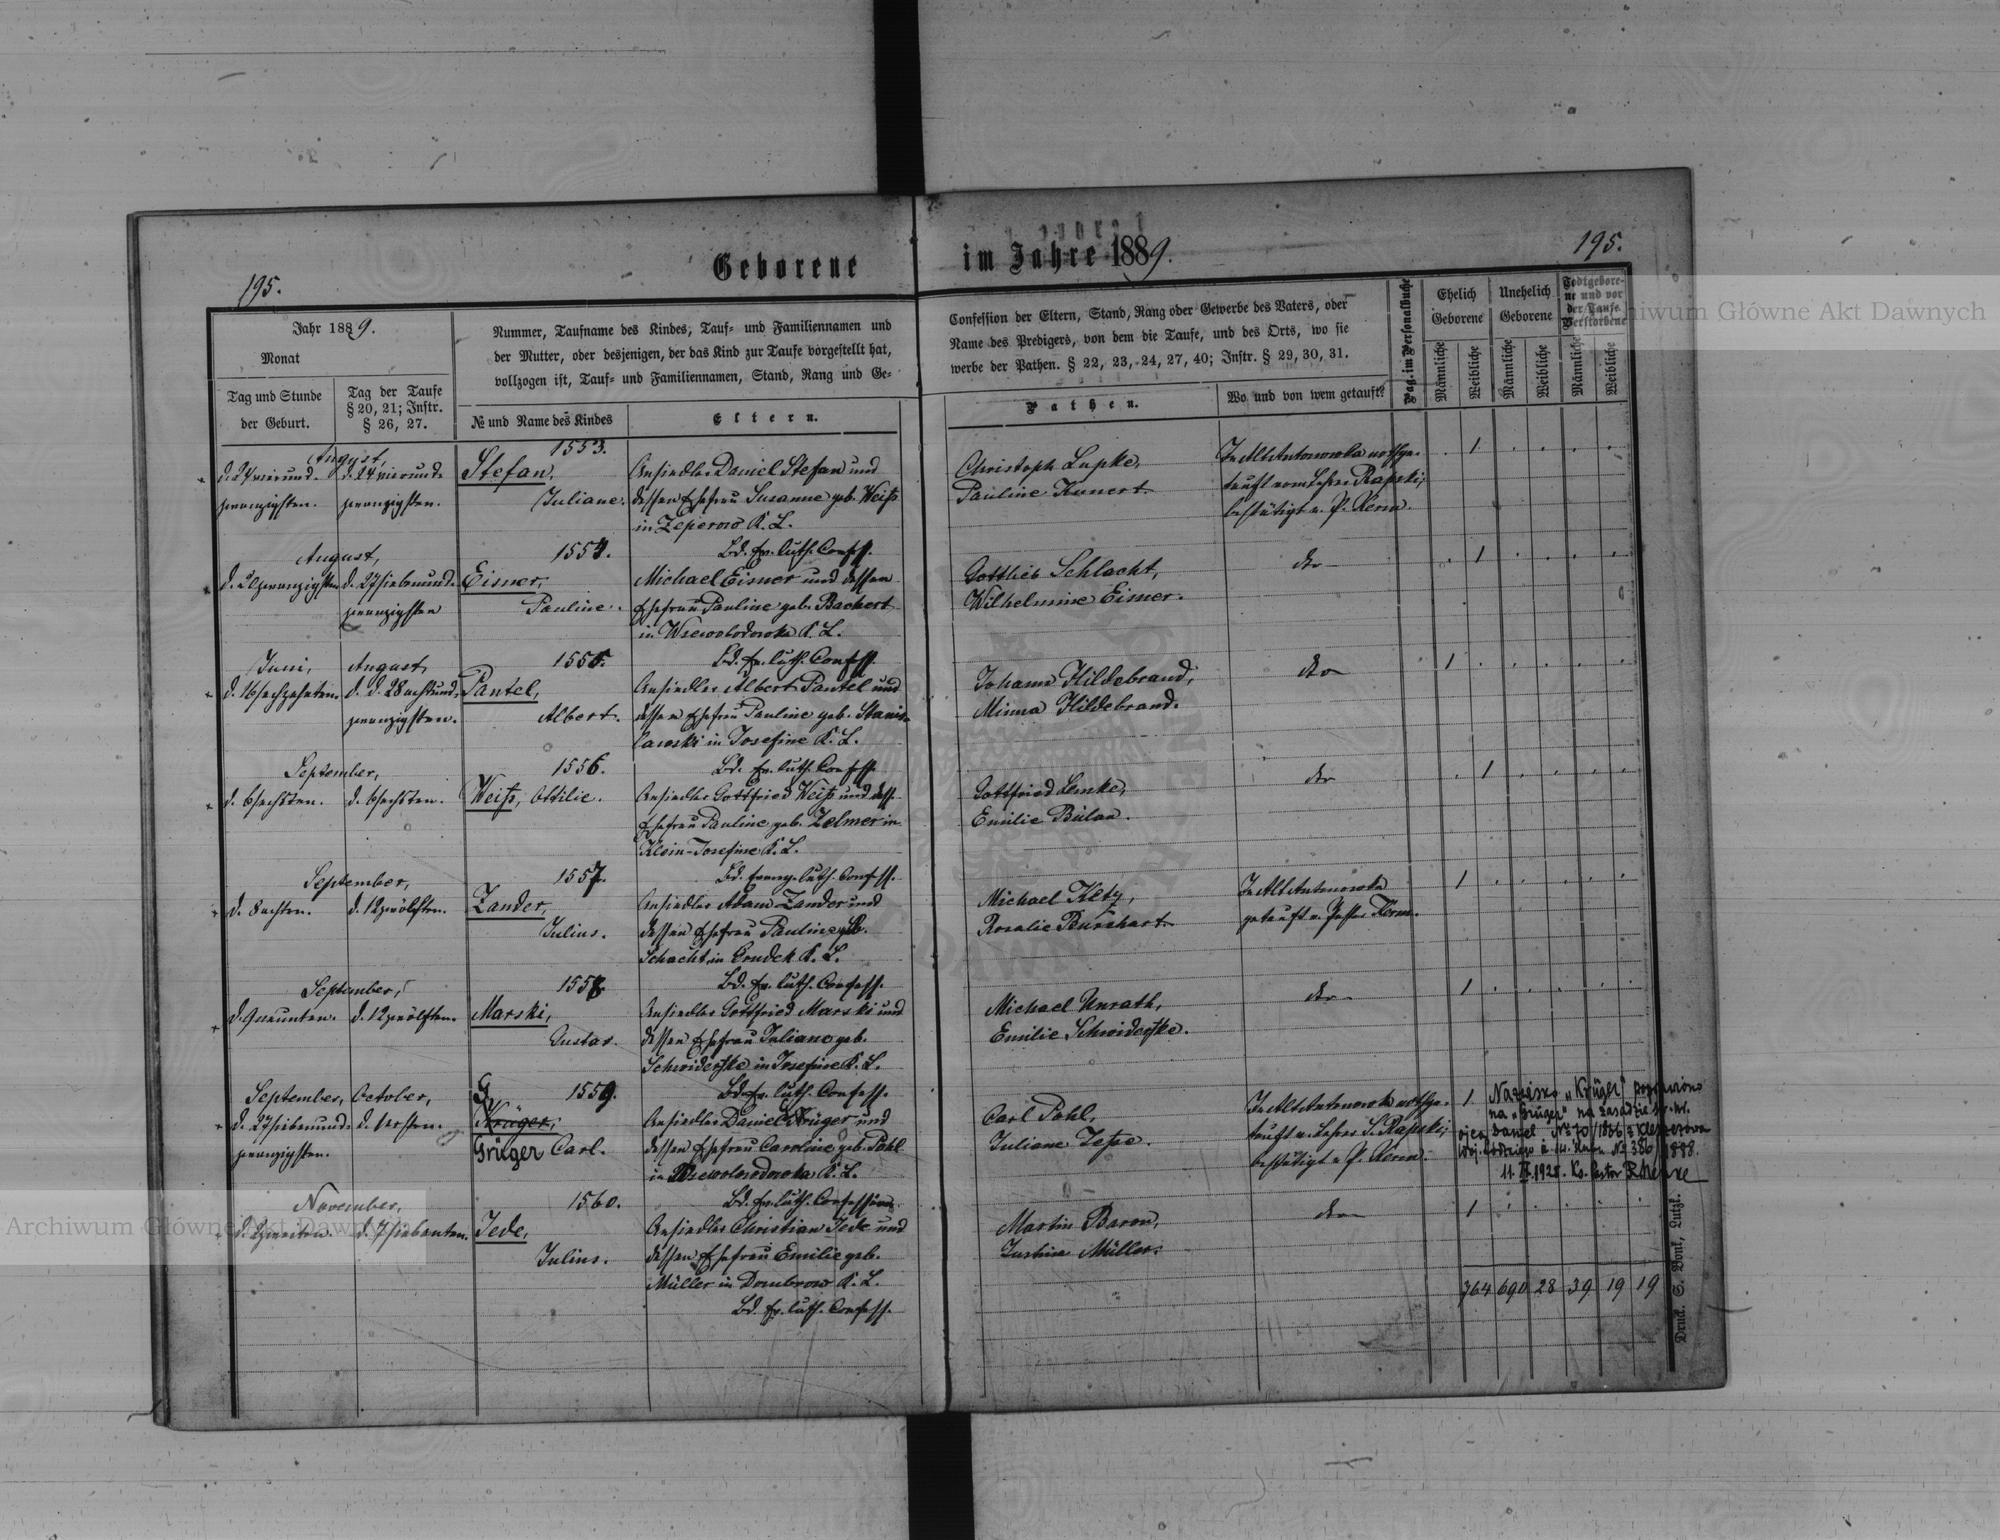 195.
Geborene
im Jahre 1889.
195.
Jahr 1889.
Monat
Tag und Stunde
der Geburt.
Tag der Taufe
§ 20, 21; Instr.
§ 26, 27.
Nummer, Taufname des Kindes, Tauf- und Familiennamen und
der Mutter, oder desjenigen, der das Kind zur Taufe vorgestellt hat,
vollzogen ist, Tauf- und Familiennamen, Stand, Rang und Ge-
№ und Name des Kindes
Eltern.
Confession der Eltern, Stand, Rang oder Gewerbe des Vaters, oder
Name des Predigers, von dem die Taufe, und des Orts, wo sie
werbe der Pathen. § 22, 23, 24, 27, 40; Instr. § 29, 30, 31.
Pathen.
Wo und von wem getauft?
Pag. im Personalbuche
Ehelich
Geborene
Unehelich
Geborene
Todtgebore-
ne und vor
der Taufe
Verstorbene
Männliche
Weibliche
Männliche
Weibliche
Männliche
Weibliche
August,
d. 24 vierund-
zwanzigsten.
d. 24 vierund-
zwanzigsten.
1553.
Stefan,
Juliane.
Ansiedler Daniel Stefan und
dessen Ehefrau Susanne geb. Weiß
in Zeperow K. L.
Bd. Ev. luth. Confess.
Christoph Lupke,
Pauline Kunert
In Alt Antonowka nothge-
tauft vom Lehrer Rapski;
bestätigt v. P. Kerm.
1
August,
d. 20 zwanzigsten
d. 27 siebenund-
zwanzigsten
1554.
Eismer,
Pauline.
Michael Eismer und dessen
Ehefrau Pauline geb. Bachert
in Wsewolodowka K. L.
Bd. Ev. luth. Confess.
Gottlieb Schlacht,
Wilhelmine Eismer.
dto
1
Juni,
d. 16 sechzehnten
August,
d. d. 28 achtund-
zwanzigsten.
1555.
Pantel,
Albert.
Ansiedler Albert Pantel und
dessen Ehefrau Pauline geb. Stanis-
lawski in Josefine K. L.
Bd. Ev. luth. Confess.
Johann Hildebrand,
Minna Hildebrand.
dto
1
September,
d. 6 sechsten.
d. 6 sechsten.
1556.
Weiß, Ottilie.
Ansiedler Gottfried Weiß und dess.
Ehefrau Pauline geb. Zelmer in
Klein-Josefine K. L.
Bd. evang. luth. Confess.
Gottfried Lemke,
Emilie Bülau.
dto
1
September,
d. 8 achten.
d. 12 zwölften.
1557.
Zander,
Julius.
Ansiedler Adam Zander und
dessen Ehefrau Pauline geb.
Schacht in Gondek K. L.
Bd. Ev. luth. Confess.
Michael Ketz,
Rosalie Burchart
In Alt Antonowka
getauft v. Pastor Kerm.
1
September,
d. 9 neunten.
d. 12 zwölften.
1558.
Marski,
Gustav.
Ansiedler Gottfried Marski und
dessen Ehefrau Juliane geb.
Schwiderske in Josefine K. L.
Bd. Ev. luth. Confess.
Michael Unrath,
Emilie Schwiderske.
dto
1
September,
d. 27 siebenund-
zwanzigsten.
October,
d. 1 ersten.
1559.
G
Krüger,
Grüger Carl.
Ansiedler Daniel Krüger und
dessen Ehefrau Caroline geb. Pohl
in Wsewolodowka K. L.
Bd. Ev. luth. Confession
Carl Pohl,
Juliane Zepe.
In Alt Antonowk nothge-
tauft v. Lehrer S. Rapski;
bestätigt v. P. Kerm.
1
Nazwisko "Krüger" poprawiono
na "Grüger" na zasadzie
ojca Daniel № 70/1836 z
№ 386/1888.
1928. Ks. Pastor
November,
d. 2 zweiten.
d. 7 siebenten.
1560.
Jede,
Julius.
Ansiedler Christian Jede und
dessen Ehefrau Emilie geb.
Müller in Dombrow K. L.
Bd. Ev. luth. Confess.
Martin Baron,
Justine Müller.
dto
1
764 690 28 39 19 19
Druck. S. Bonk, Lutzk.
Archiwum Główne Akt Dawnych
Archiwum Główne Akt Dawnych